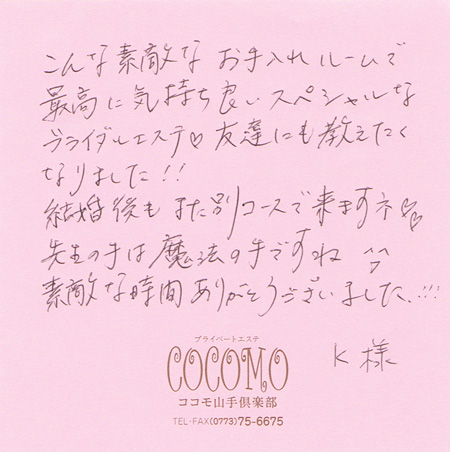 こんな素敵な お手入れルームで
最高に気持ち良いスペシャルな
ブライダルエステ♡友達にも教えたく
なりました!!
結婚後も また別コースで来ますネ♡♡
先生の手は魔法の手ですね ^^
素敵な時間ありがとうございました、!!!
K様
プライベートエステ
COCOMO
ココモ山手倶楽部
TEL・FAX(0773)75-6675